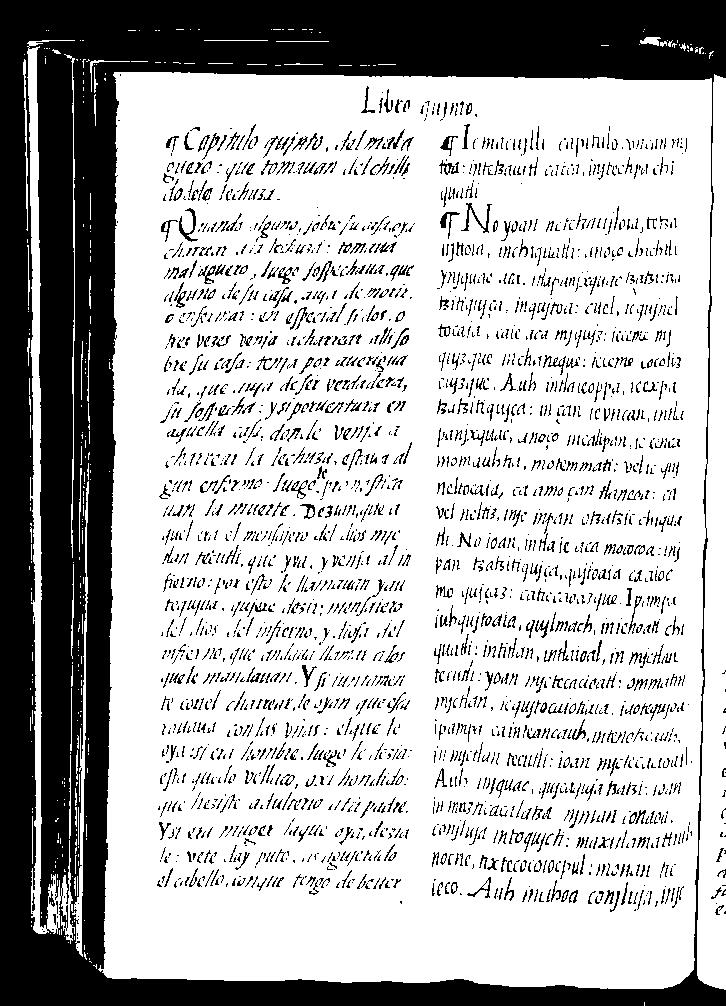 Libro quinto.
¶ Capitulo quinto, del mala
guero: que tomauan del chilli
do dela lechuza.
¶ Quando alguno, sobre su casa, oya
charrear a la lechuza: tomaua
mal aguero, luego sospechaua, que
alguno de su casa, auja de morir,
o enfermar: en especial si dos, o
tres vezes venja acharrear alli so
bre su casa: tenja por aueriqua
da, que auja de ser verdadera,
su sospecha: y si porventura en
aquella casa, donde venja a
charrear la lechuza, estaua al
gun enfermo: luego le pronostica
uan la muerte. Dezian, que a
quel era el mensajero del dios mjc
tlan tecutli, que yva, y venja al in
fierno: por esto le llamauan yau
tequjua, qujere dezir: mensajero
del dios del infierno, y diosa del
infierno, que andaua llamar a los
que le mandauan. Y si iuntamen
te con el charrear, le oyan que esca
rauaua con las vñas: el que le
oya si era hombre, luego le dezia:
esta quedo vellaco, oxi hondido:
que heziste adulterio a tu padre.
Y si era muger la que oya, dezia
le: vete day puto, as agujerado
el cabello, con que tengo de beuer
¶ Ic macujlli capitulo, vncan mj
toa: intetzaujtl catca, in jtechpa chi
quatli
¶ No yoan netetzaujloia, tetza
ujtioia, in chiquatli: anoço chichtli
yn jquac aca, itlapanjxquac tzatzi
tzitiqujça, inqujtoa: cuel, ic qujnel
tocaia, caie aca mjqujz: ieceme mj
qujzque inchaneque: ieceme cocoliz
cujzque. Auh intlaieoppa, ieexpa
tzatzitiqujça: in çan ie vncan, initla
panjxquac, anoço incalipan, ic cenca
momauhtia, motemmati: vel ic quj
neltocaia, ca amo çan tlanecoa: ca
vel neltiz, inje inpan otzatzic chiqua
tli. No ioan, intla ie aca mococoa: inj
pan tzatzitiqujça, qujtoaia ca aioc
mo qujçaz: Ipampa
iuhqujtoaia, qujlmach, in iehoatl chi
quatli: intitlan, intlaioal, in mjctlan
tecutli: yoan mjctecacioatl: ommatini
mjctlan, ic qujtocaiotiaia, iaotequjoa:
ipampa cainteoncauh, intenotzcauh,
in mjctlan tecutli: ioan mjctecacioatl.
Auh injquac, tzatzi: ioan
in moztitacalatza njman conaoa,
conjluja intoqujchti: maxitlamattiuh
nocne, tixtecocoiocpul: monan tic
ieco. Auh incihoa conjluja, injc